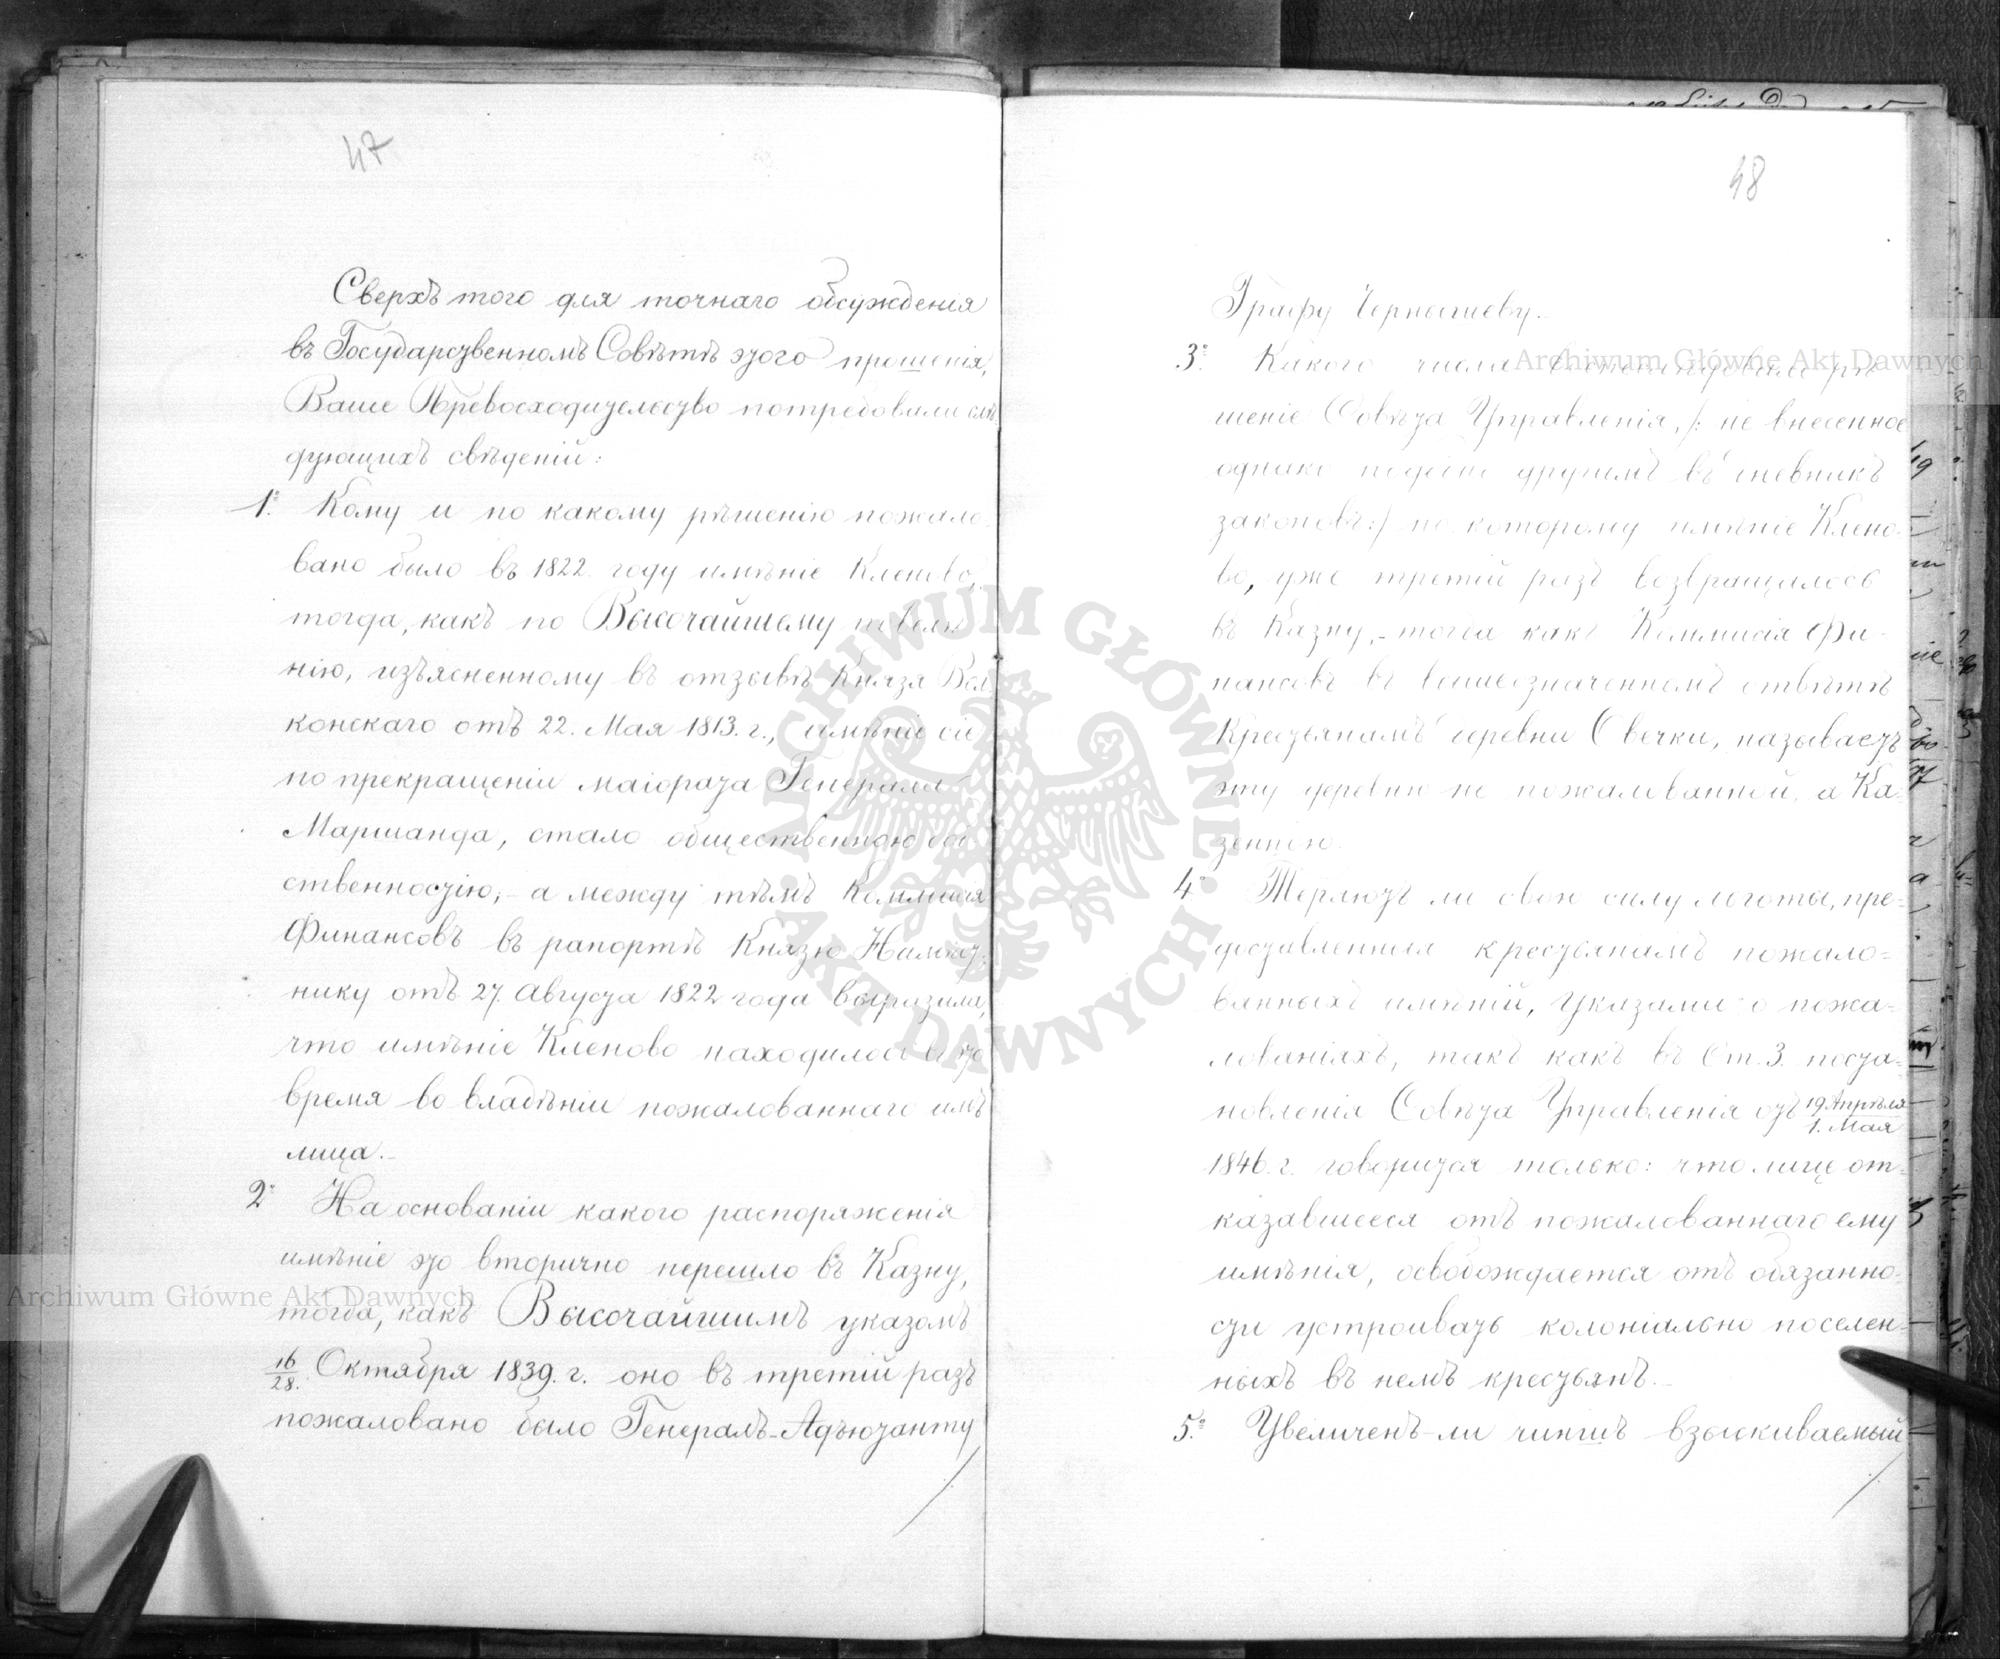 47
Сверхъ того для точнаго обсужденія
въ Государственномъ Совѣтѣ этого прошенія,
Ваше Превосходительство потребовали слѣ-
дующихъ свѣденій:
1º. Кому и по какому рѣшенію пожало-
вано было въ 1822 году имѣніе Кленово,
тогда, какъ по Высочайшему повелѣ-
нію, изъясненному въ отзывѣ Князя Вол-
конскаго отъ 22. Мая 1813. г., имѣніе сіе
по прекращеніи маіората Генерала
Маршанда, стало общественною соб-
ственностію; - а между тѣмъ Коммисія
Финансовъ въ рапортѣ Князю Намѣст-
нику отъ 27. Августа 1822 года выразила,
что имѣніе Кленово находилось въ то
время во владѣніи пожалованнаго имъ
лица. -
2º На основаніи какого распоряженія
имѣніе это вторично перешло въ Казну,
тогда, какъ Высочайшимъ указомъ
16/28. Октября 1839. г. оно въ третій разъ
пожаловано было Генералъ-Адъютанту
48
Графу Чернышеву. -
3º. Какого числа
шеніе Совѣта Управленія, /: не внесенное
однако подобно другимъ въ дневникъ
законовъ :/ по которому имѣніе Клено-
во, уже третій разъ возвращалось
въ Казну, - тогда какъ Коммисія Фи-
нансовъ въ вышеозначенномъ отвѣтѣ
Крестьянамъ деревни Овечки, называетъ
эту деревню не пожалованной, а Ка-
зенною.
4º Теряютъ ли свою силу льготы, пре-
доставленныя крестьянамъ пожало-
ванныхъ имѣній, указами о пожа-
лованіяхъ, такъ какъ въ Ст. 3. поста-
новленія Совѣта Управленія отъ 19 Апрѣля/1. Мая
1846. г. говорится только: что лице от-
казавшееся отъ пожалованнаго ему
имѣнія, освобождается отъ обязанно-
сти устроивать колоніально поселен-
ныхъ въ немъ крестьянъ. -
5º. Увеличенъ-ли чиншъ взыскиваемый
Archiwum Główne Akt Dawnych
Archiwum Główne Akt Dawnych
ARCHIWUM GŁÓWNE AKT DAWNYCH